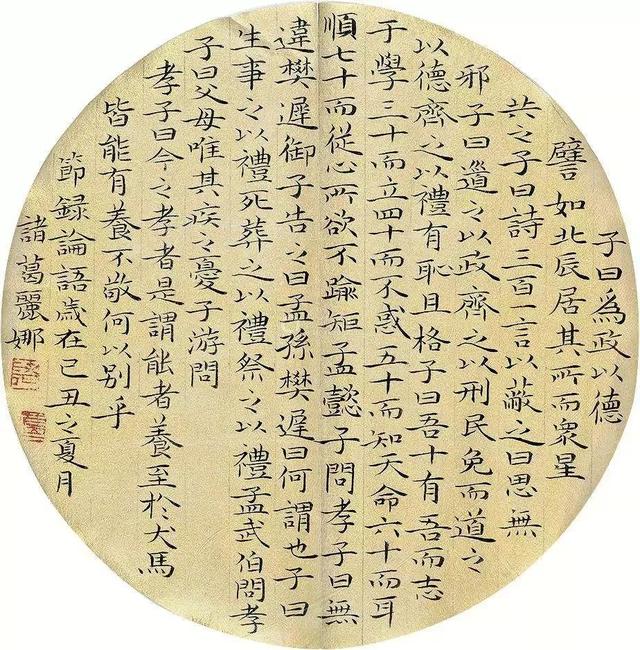 子曰為政以德
譬如北辰居其所而眾星
共之子曰詩三百一言以蔽之曰思無
邪子曰道之以政齊之以刑民免而道之
以德齊之以禮有恥且格子曰吾十有吾而志
于學三十而立四十而不惑五十而知天命六十而耳
順七十而從心所欲不踰矩孟懿子問孝子曰無
違樊遲御子告之曰孟孫樊遲曰何謂也子曰
生事之以禮死葬之以禮祭之以禮孟武伯問孝
子曰父母唯其疾之憂子游問
孝子曰今之孝者是謂能者養至於犬馬
皆能有養不敬何以別乎
節録論語歲在己丑之夏月
諸葛麗娜